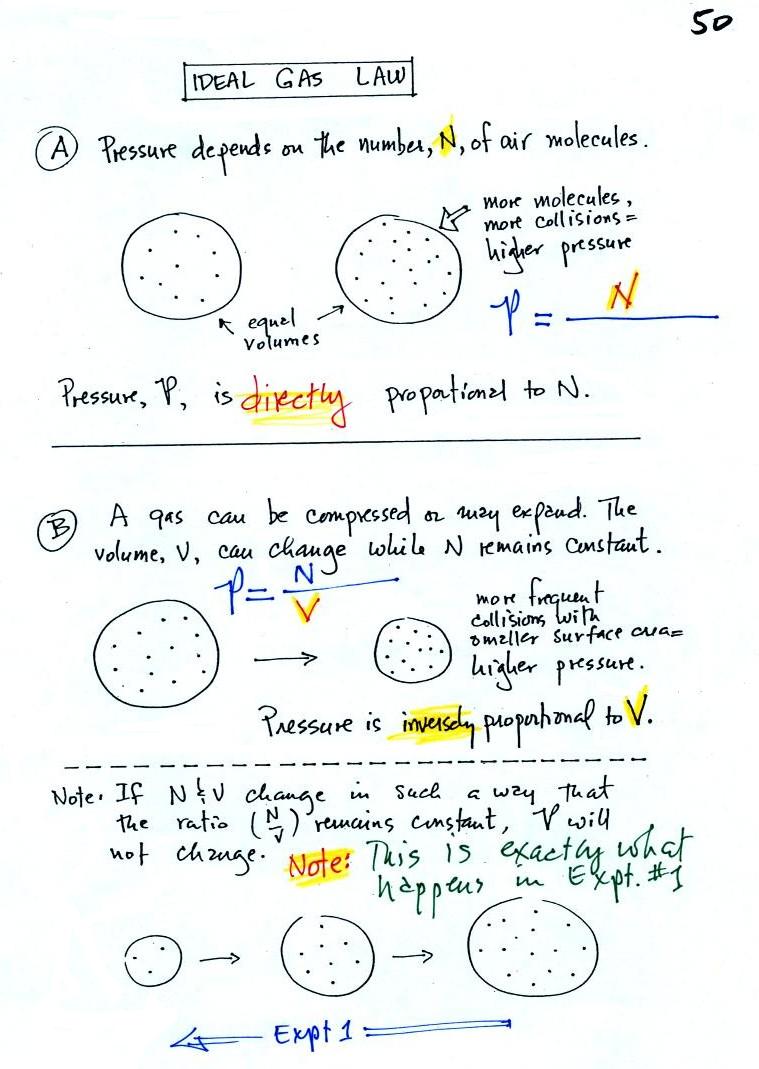 50
IDEAL GAS LAW
A Pressure depends on the number, N, of air molecules.
more molecules,
more collisions =
higher pressure
equal
volumes
P = N
Pressure, P, is directly proportional to N.
B A gas can be compressed or may expand. The
volume, V, can change while N remains constant.
P = N
V
more frequent
collisions with
smaller surface area =
higher pressure.
Pressure is inversely proportional to V.
Note: If N & V change in such a way that
the ratio (N/V) remains constant, P will
not change. Note: This is exactly what
happens in Expt. #1
Expt 1